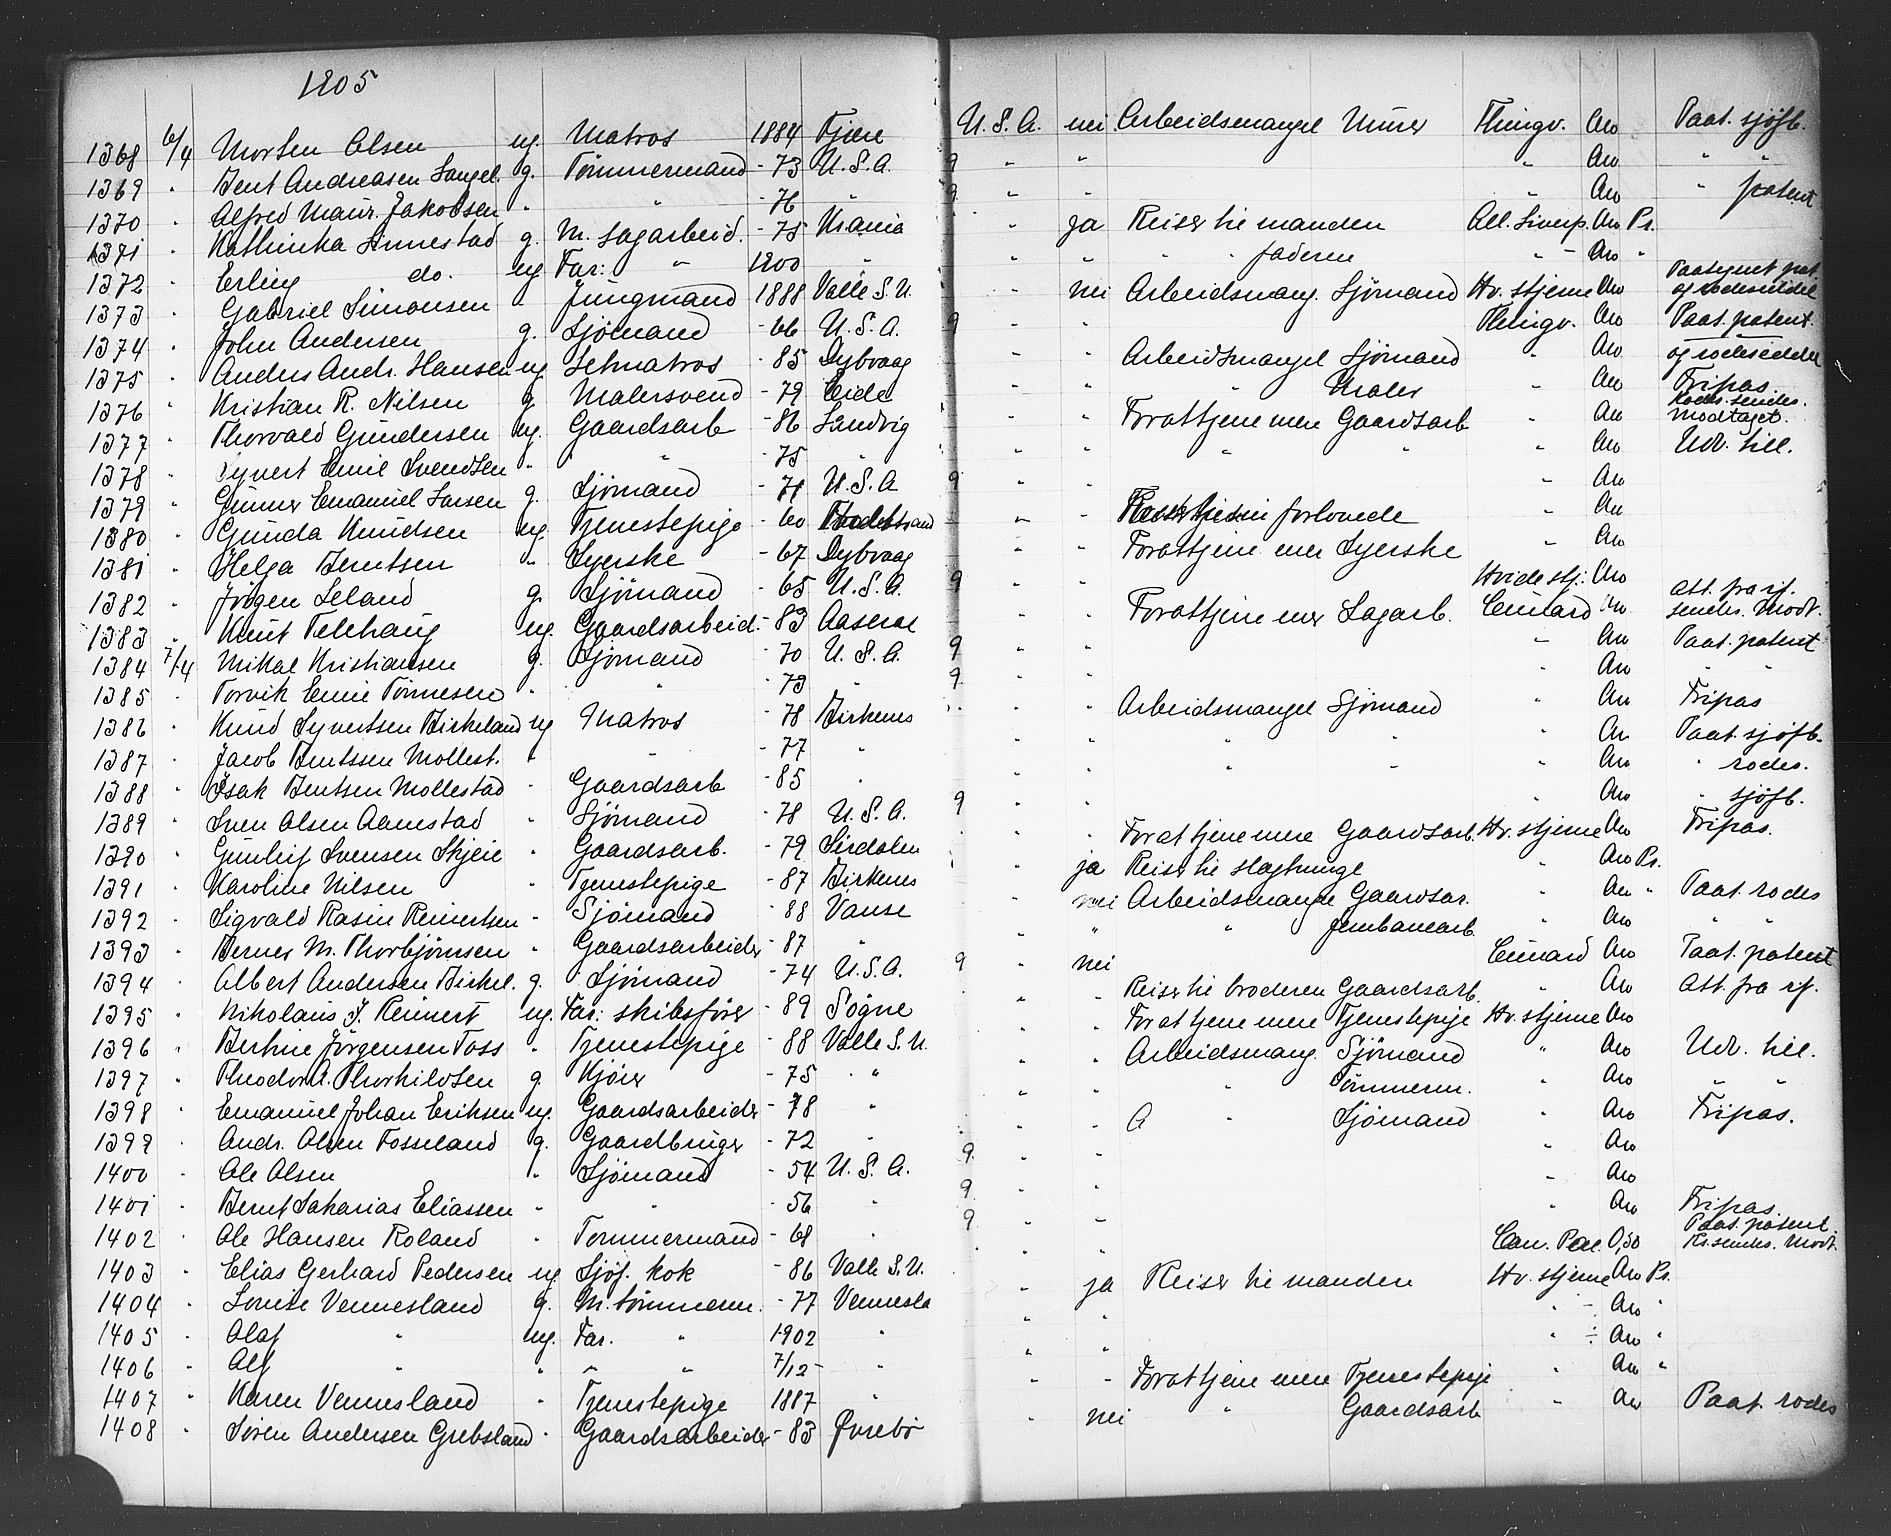 1905
1368 6/4 Morten Olsen ug. Matros 1884 Tjøse U.S.A. nei Arbeidsmangel Murer Thingv. Aro Paat. sjöfb.
1369 " Bent Andreasen g. Tömmermand - 73 U.S.A. 9 " " " Aro " "
1370 " Alfred Maur. Jakobsen " " - 76 " 9 " " " Aro " patent
1371 " Kathinka Sinnestad g. M. Sagarbeid. - 75 " ja Reiser til manden All. Liverp. Aro Pr.
1372 " Erling do. ug. Far: " 1900 " " " " faderen " - Aro "
1373 " Gabriel Simonsen " Jungmand 1888 Valle S.U. " nei Arbeidsmang. Sjömand Hv. stjerne Aro Paategnet pat. og rodeseddel
1374 " John Andersen g. Sjömand - 66 U.S.A. 9 " " Thingv. Aro Paat. patent.
1375 " Anders Andr. Hansen ug. Letmatros - 85 Dybvaag " " Arbeidsmangel Sjömand " Aro og rodeseddel
1376 " Kristian R. Nilsen g. Malersvend - 79 Eide " " " Maler " Aro Fripas
1377 " Thorvald Gundersen ug. Gaardsarb - 86 Landvig " " Forattjene mere Gaardsarb " Aro Rodes. sendes. Modtaget.
1378 " Syvert Emil Svendsen " " - 75 " " " " " Aro Udv. till.
1379 " Gunner Emanuel Larsen g. Sjömand - 71 U.S.A 9 " " " Aro
1380 " Gunda Knudsen ug. Tjenestepige - 60 " " Reiser til sin forlovede " Aro
1381 " Helga Berntsen " Syerske - 67 Dybvaag " " Forattjene mer Syerske " Aro
1382 " Jörgen Leland g. Sjömand - 65 U.S.A. 9 " " Hvide stj. Aro
1383 " Knut Telehaug ug. Gaardsarbeid. - 83 Aaseral " " Forattjene mer Sagarb. Cunard Aro Att. fra rf. sendes. Modt.
1384 7/4 Mikal Kristiansen g. Sjömand - 70 U.S.A. 9 " " " Aro Paat. patent
1385 " Torvik Emil Tönnesen " " - 73 " 9 " " " Aro " "
1386 " Knud Syvertsen Birkeland ug Matros - 78 Birkenes " " Arbeidsmangel Sjömand " Aro Fripas
1387 " Jacob Berntssen Mollest. " " - 77 " " " " " " Aro Paat. sjöfb.
1388 " Isak Berntsen Mollestad " Gaardsarb - 85 " " " " " " Aro " rodes.
1389 " Sven Olsen Aamestad " Sjömand - 78 U.S.A. 9 " " " Aro " sjöfb.
1390 " Gunleif Svensen Skjeie " Gaardsarb. - 79 Sirdalen " " Forat tjene mere Gaardsarb. Hv. stjerne Aro Fripas.
1391 " Karoline Nilsen " Tjenestepige - 87 Birkenes " ja Reiser til slegtninge " Aro Pr.
1392 " Sigvald Rasin Reinertsen " Sjömand - 88 Vanse " nei Arbeidsmange Gaardsar. " Aro " Paat. rodes
1393 " Berner M. Thorbjörnsen " Gaardsarbeider - 87 " " " " Jernbanearb. " Aro " "
1394 " Albert Andersen Birkel. g. Sjömand - 74 U.S.A. 9 " nei Cunard Aro Paat. patent
1395 " Nikolaus J. Reinert ug. Far: skibsförer - 89 Sögne " " Reiser til broderen Gaardsarb. " Aro Att. fra rf.
1396 " Bertine Jörgensen Foss " Tjenestepige - 88 Valle S.U. " " Forat tjene mere Tjenestepige Hv. stjerne Aro
1397 " Theodor A. Thorkildsen g. Kjörer - 75 " " " " Arbeidsmang. Sjömand " Aro Udv. till.
1398 " Emanuel Johan Eriksen ug. Gaardsarbeider - 78 " " " " Tömmerm. " Aro " "
1399 " Andr. Olsen Fosseland g. Gaardbruger - 72 " " " A " Sjömand " Aro Fripas.
1400 " Ole Olsen " Sjömand - 54 U.S.A. 9 " " " Aro
1401 " Bernt Sakarias Eliassen " " - 56 " 9 " " " Aro
1402 " Ole Hansen Roland " Tömmermand - 68 " 9 " " " Aro Fripas.
1403 " Elias Gerhard Pedersen ug Sjöf. kok - 86 Valle S.U. " " Can. Pac. 0,50 Paat. patent. Rs. sendes. Modt.
1404 " Louise Vennesland g. M. tömmerm. - 77 Vennesla " ja Reiser til manden Hv. stjerne Aro Pr.
1405 " Olaf " ug. Far. " 1902 " " " " - Aro "
1406 " Alf " " " " 7/12 - " " " " ÷ Aro "
1407 " Karen Vennesland " Tjenestepige 1887 " " " Forattjene mere Tjenestepige " Aro "
1408 " Sören Andersen Grebsland " Gaardsarbeider - 83 Øvrebö " nei " Gaardsarb " Aro Paat. rodes